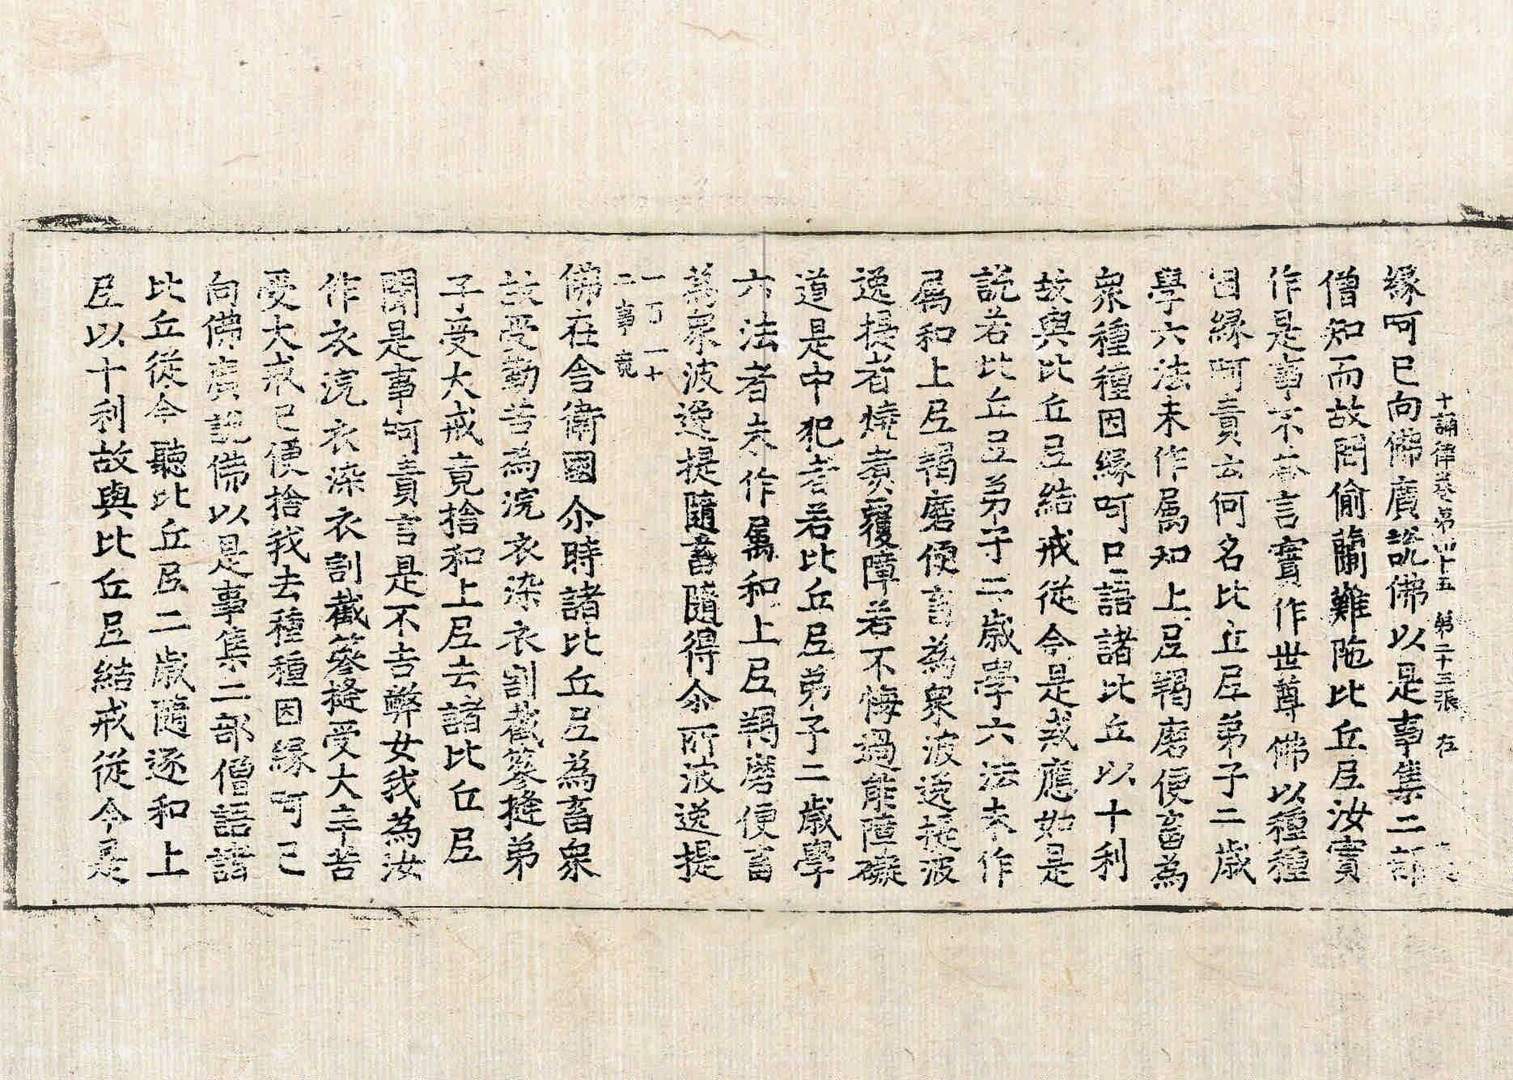 十誦律卷第四十五 第二十三張 左
緣呵已向佛廣說佛以是事集二部
僧知而故問偷蘭難陁比丘尼汝實
作是事不答言實作世尊佛以種種
因緣呵責云何名比丘尼弟子二歲
學六法未作属和上尼羯磨便畜為
衆種種因緣呵已語諸比丘以十利
故與比丘尼結戒從今是戒應如是
說若比丘尼弟子二歲學六法未作
属和上尼羯磨便畜為衆波逸提波
逸提者燒煑覆障若不悔過能障礙
道是中犯者若比丘尼弟子二歲學
六法者未作属和上尼羯磨便畜
為衆波逸提隨畜隨得尒所波逸提
一百一十
二事竟
佛在舍衛國尒時諸比丘尼為畜衆
故受勤苦為浣衣染衣割截簪縫弟
子受大戒竟捨和上尼去諸比丘尼
聞是事呵責言是不吉弊女我為汝
作衣浣衣染衣割截簪縫受大辛苦
受大戒已便捨我去種種因緣呵已
向佛廣說佛以是事集二部僧語諸
比丘從今聽比丘尼二歲隨逐和上
尼以十利故與比丘尼結戒從今是